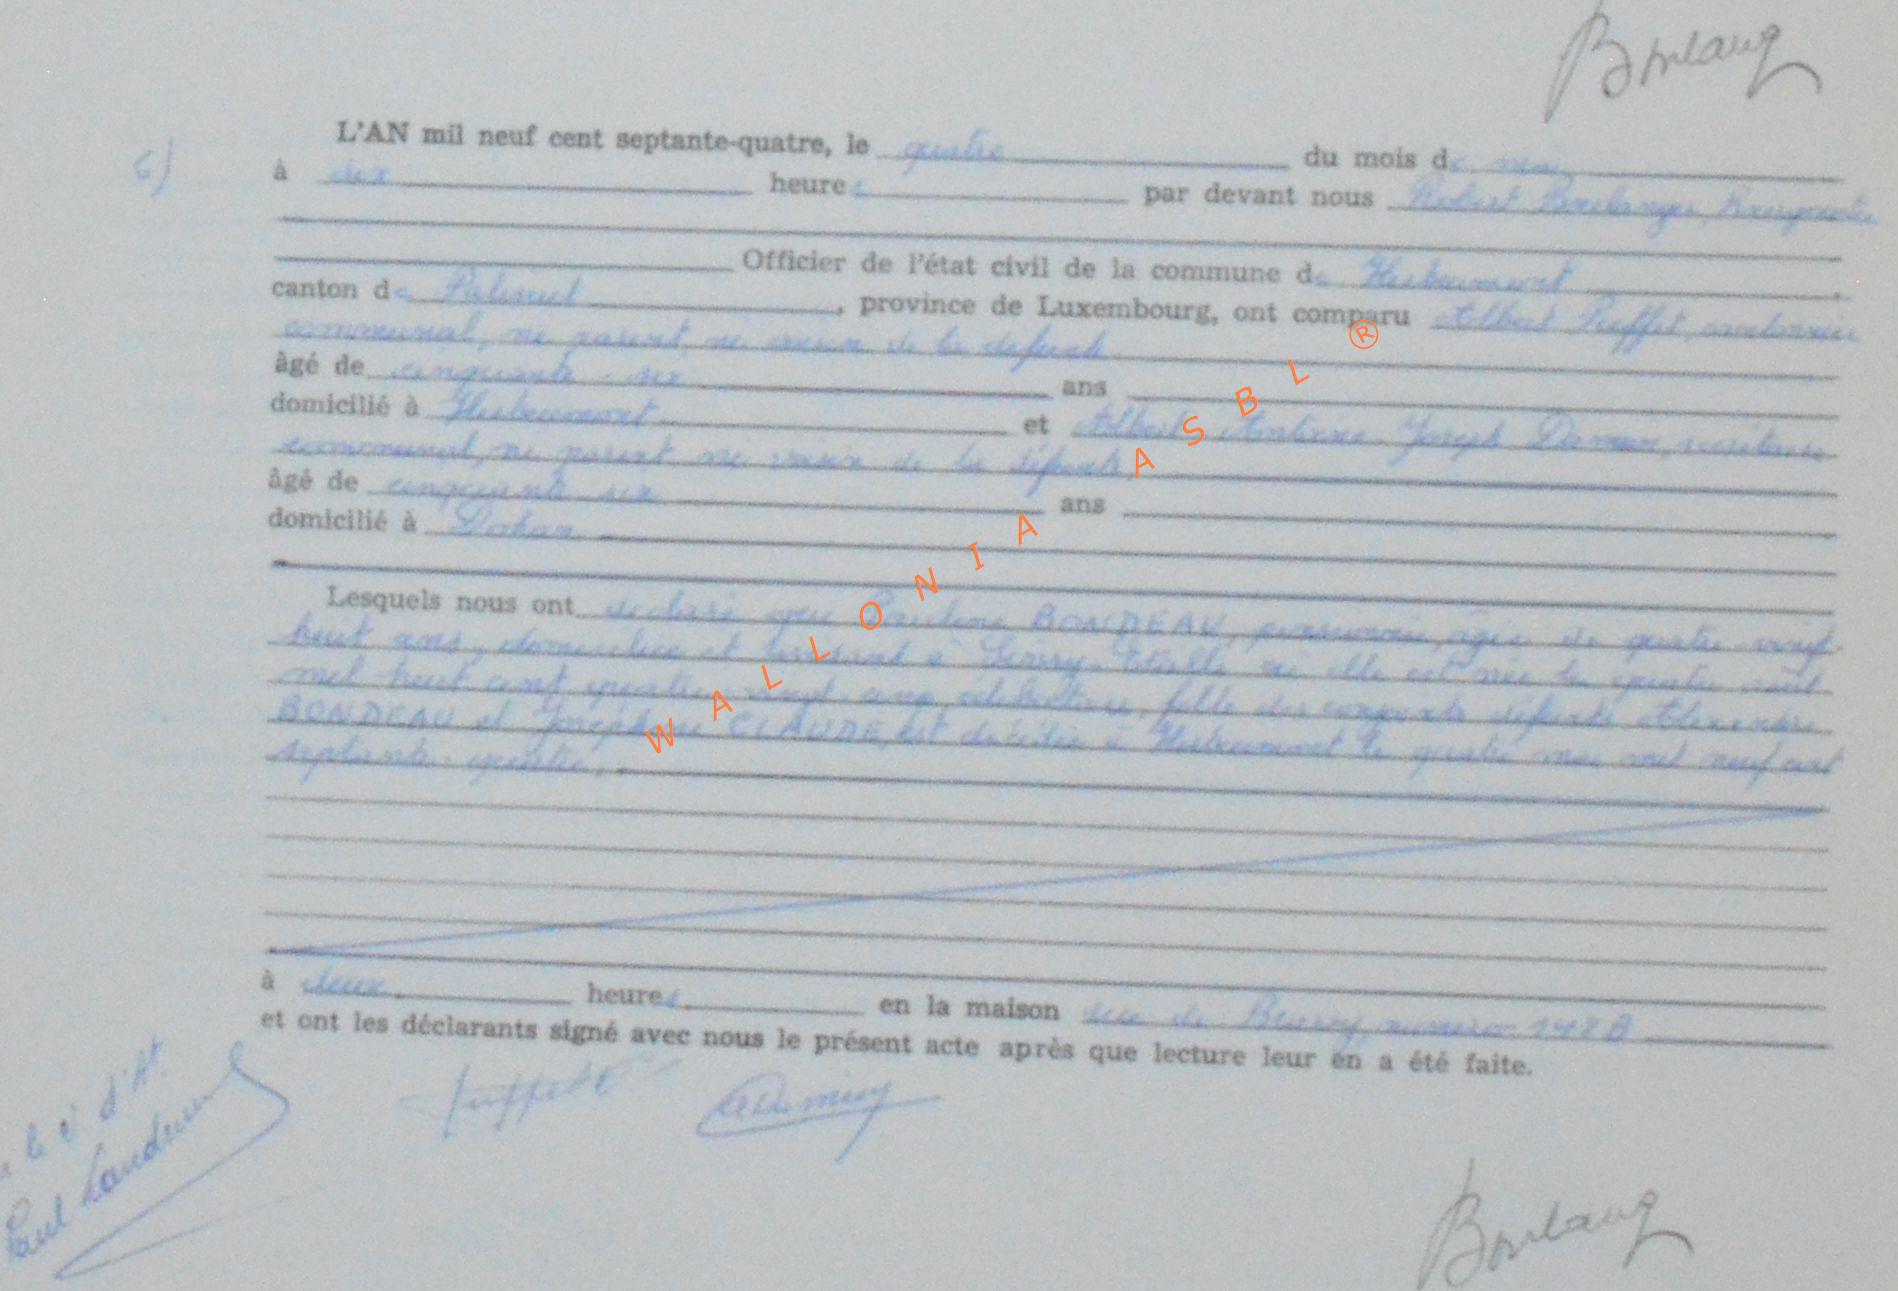 Boulang
6) L'AN mil neuf cent septante-quatre, le quatre du mois de mai
à dix heures par devant nous Robert Boulanger, Bourgmestre
Officier de l'état civil de la commune de Herbeumont,
canton de Paliseul, province de Luxembourg, ont comparu Albert Puffet, cantonnier
communal, ni parent, ni voisin de la défunte
âgé de cinquante-six ans
domicilié à Herbeumont et Albert Antoine Joseph secrétaire
communal, ni parent ni voisin de la défunte,
âgé de cinquante six ans
domicilié à Dohan
Lesquels nous ont déclaré que Pauline BONDEAU, pensionnée, âgée de quatre-vingt-
huit ans, domiciliée et à où elle est née le quatre août
mil huit cent quatre-vingt-cinq, célibataire, fille des conjoints défunts Alexandre
BONDEAU et Joséphine CLAUDE, est décédée à Herbeumont le quatre mai mil neuf cent
septante-quatre,
à deux heures en la maison rue de numéro 142 B
et ont les déclarants signé avec nous le présent acte après que lecture leur en a été faite.
le v. d'At.
Paul
Puffet
Boulang
WALLONIA ASBL ®